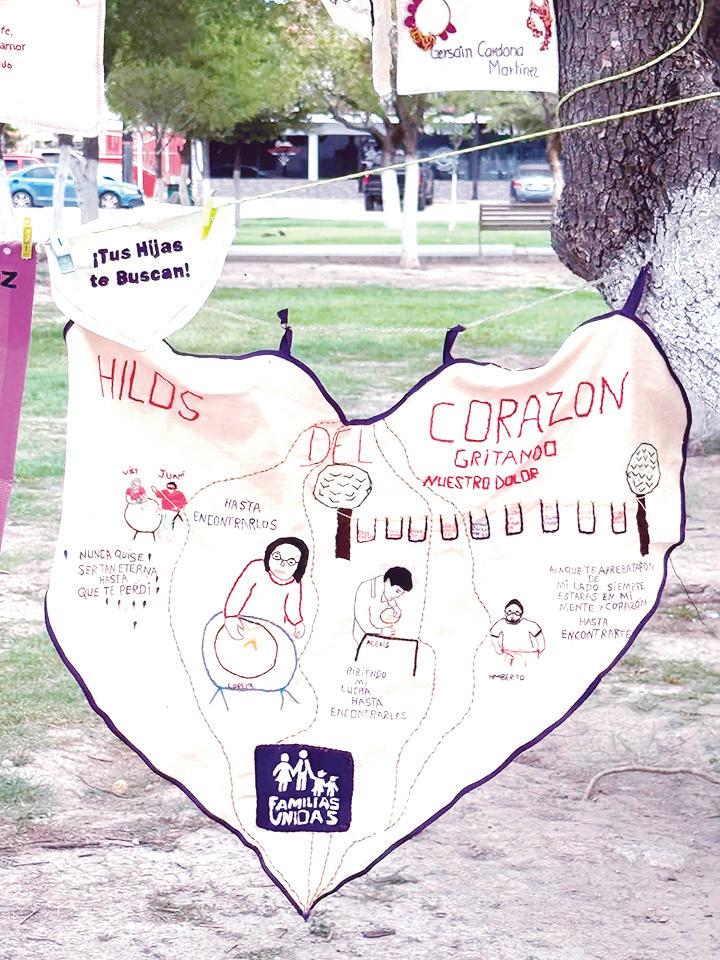 fe,
amor
Gersain Cardona
Martínez
Z
¡Tus Hijas
te Buscan!
HILOS
DEL
CORAZON
GRITANDO
NUESTRO DOLOR
JUANI
HASTA
ENCONTRARLOS
NUNCA QUISE
SER TAN ETERNA
HASTA
QUE TE PERDI
AUNQUE TE ARREBATARON
DE
MI LADO SIEMPRE
ESTARAS EN MI
MENTE Y CORAZON
HASTA
ENCONTRARTE
ALEXIS
BIBIENDO
MI
LUCHA
HASTA
ENCONTRARLAS
HMBERTO
FAMILIAS
UNIDAS